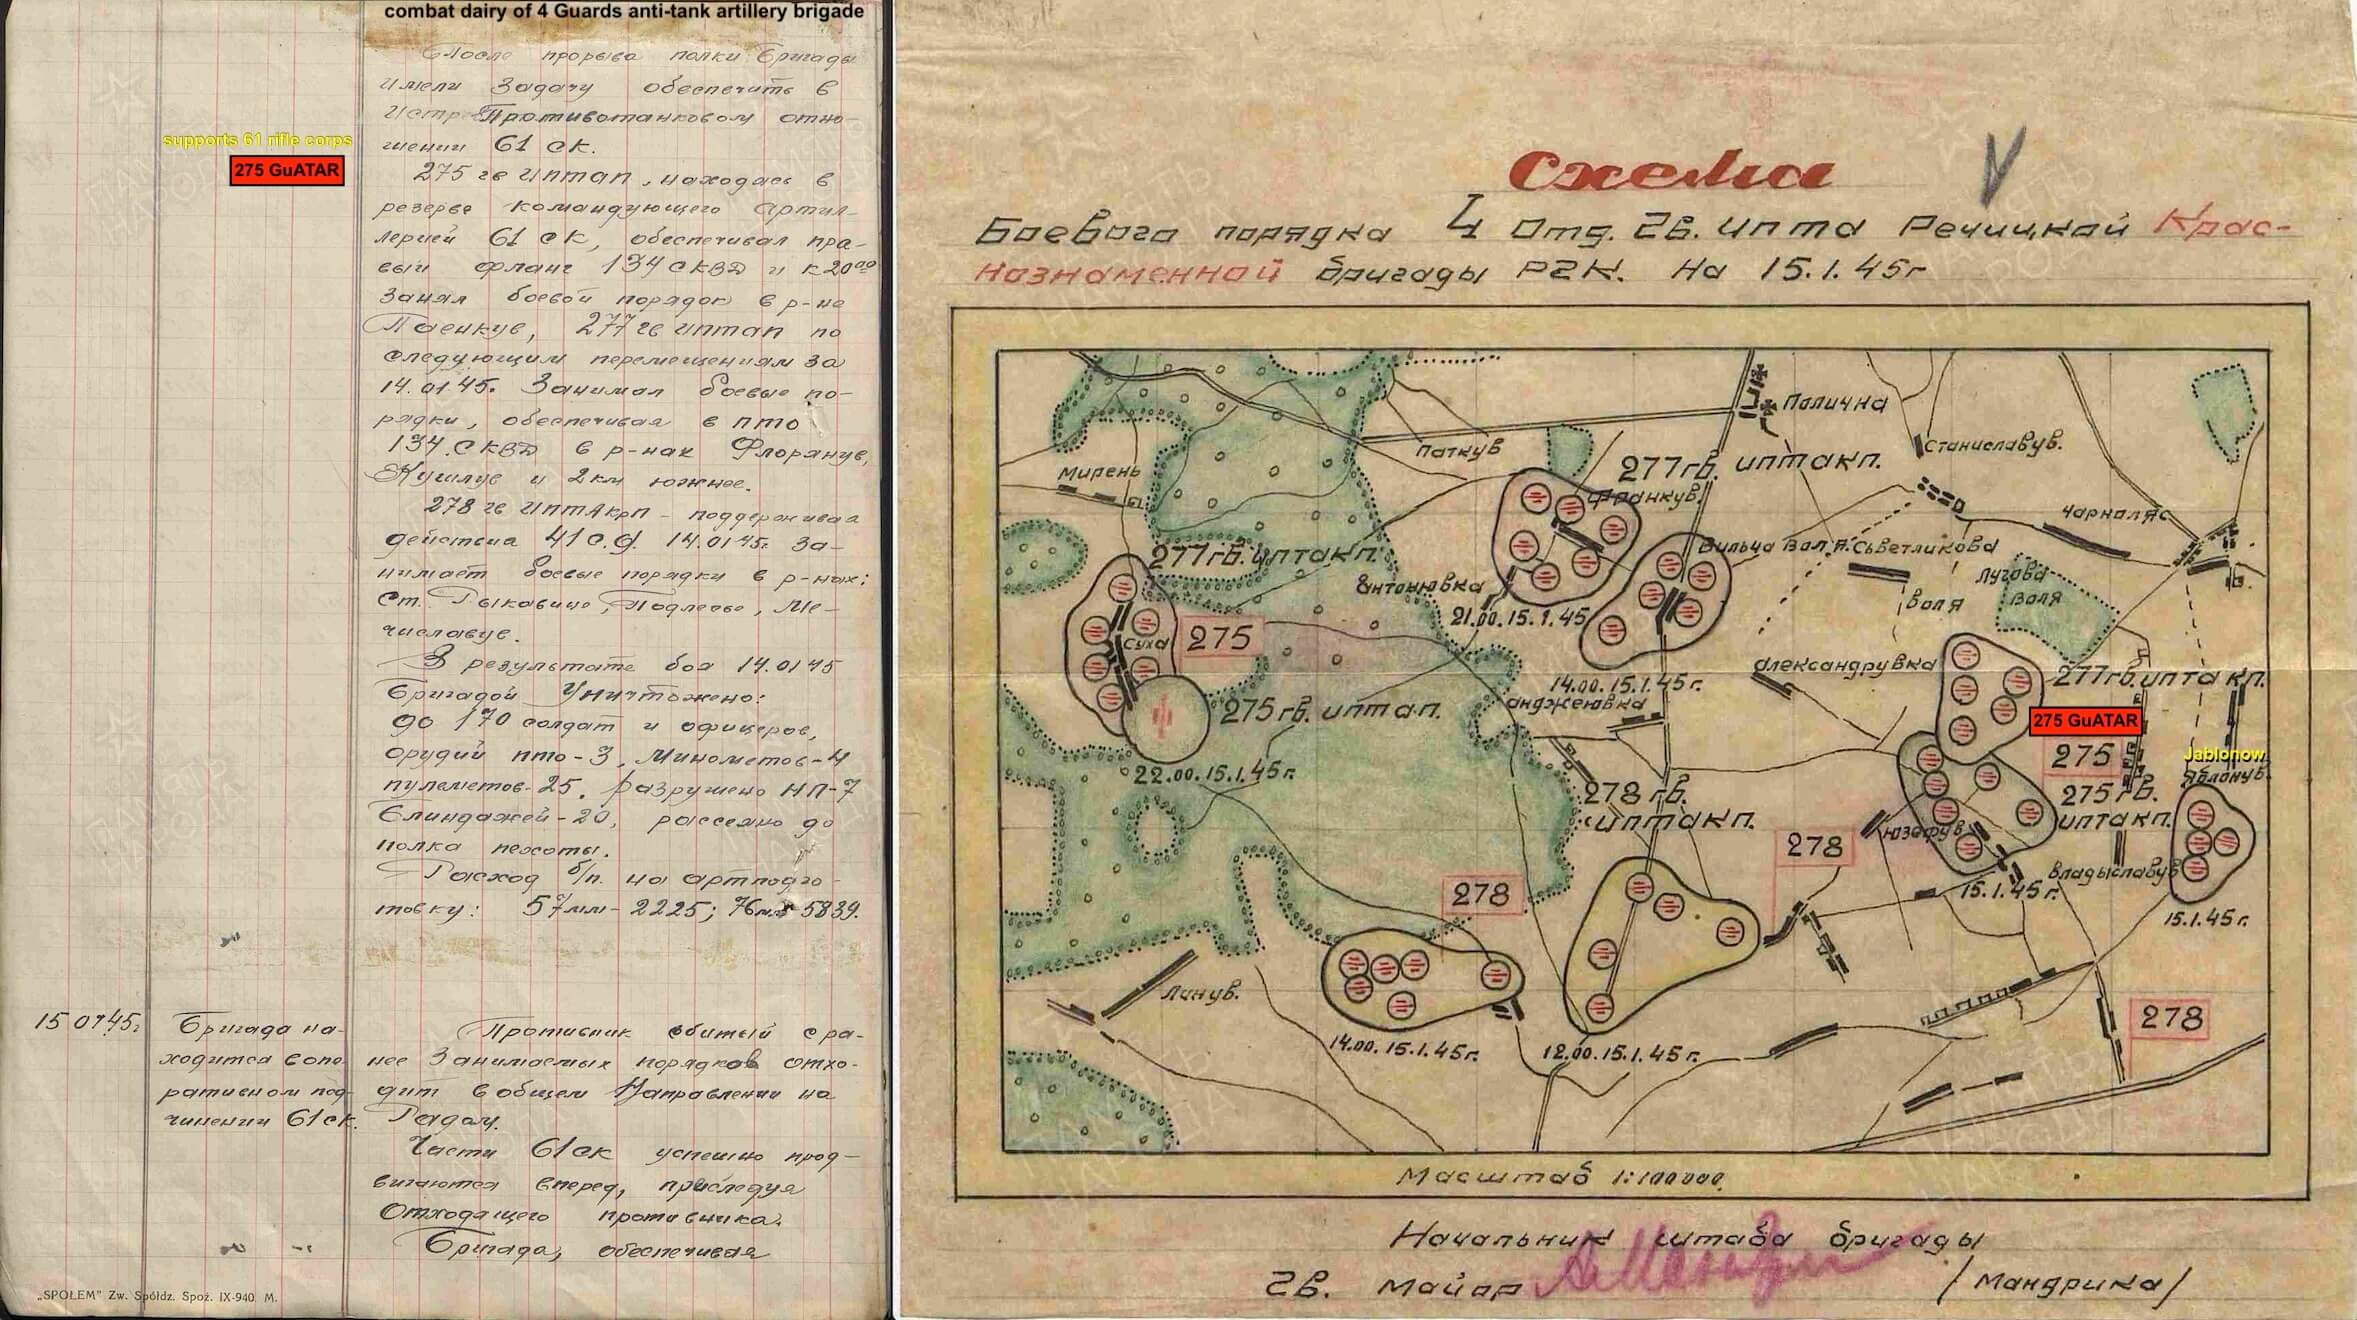 combat dairy of 4 Guards anti-tank artillery brigade
После прорыва полки бригады
имели задачу обеспечить в
Истр Противотанковом отно-
шении 61 ск.
supports 61 rifle corps
275 GuATAR
275 гв иптап, находясь в
резерве командующего артил-
лерией 61 ск, обеспечивал пра-
вый фланг 134 СКВД и к 20 00
занял боевой порядок в р-не
277 гв иптап по
следующим перемещениям за
14.01.45. Занимал боевые по-
рядки, обеспечивая в пто
134 СКВД в р-нах Флорянув,
и 2 км южнее.
278 гв иптакп - поддерживая
действия 41 с.д. 14.01.45г. за-
нимает боевые порядки в р-нах:
ст. Подлесье, Ме-
числавув.
В результате боя 14.01.45
Бригадой Уничтожено:
до 170 солдат и офицеров,
орудий пто-3, Минометов-4
пулеметов-25, разрушено НП-7
Блиндажей-20, рассеяно до
полка пехоты.
Расход б/п. на артподго-
товку: 57мм-2225; 76мм 5839.
15 01 45г
Бригада на-
ходится в опе
ративном под
чинении 61 ск.
Противник сбитый с ра-
нее Занимаемых порядков отхо-
дит в общем Направлении на
Радом.
Части 61 ск успешно прод-
вигаются вперед, преследуя
Отходящего противника.
Бригада, обеспечивая
„SPOŁEM" Zw. Spółdz. Spoż. IX-940. M.
Схема
Боевого порядка 4 Отд. Гв. ипта Речицкой Крас-
нознаменной бригады РГК. На 15.1.45г
Полична
Станиславув.
Паткув
Мирень
277 гв. иптакп.
Франкув.
Чарноляс
277 гв. иптакп.
Вильча Воля.
Сьветликова
Воля
Лугова
Воля
Антонювка
21.00.15.1.45
Суха
275
Александрувка
277 гв. иптакп.
14.00.15.1.45г.
Анджеювка
275 гв. иптап.
275 GuATAR
275
Jablonow
Яблонув.
22.00.15.1.45г.
278 гв.
иптакп.
275 гв.
иптакп.
Юзефув
278
Владыславув
15.1.45г.
278
15.1.45г.
Линув.
278
14.00.15.1.45г.
12.00.15.1.45г.
Масштаб 1:100000.
Начальник штаба бригады
Гв. Майор /Мандрика/